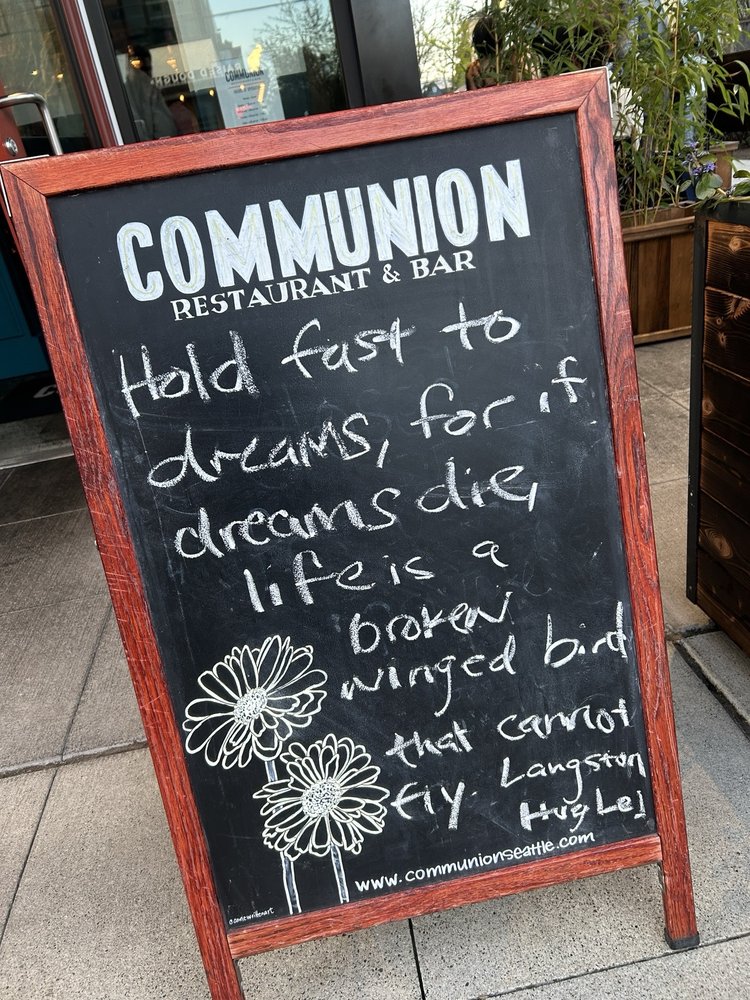 COMMUNION
COMMUNION
RESTAURANT & BAR
Hold fast to
dreams, for if
dreams die,
life is a
broken
winged bird
that cannot
fly. Langston
Hughes
www.communionseattle.com